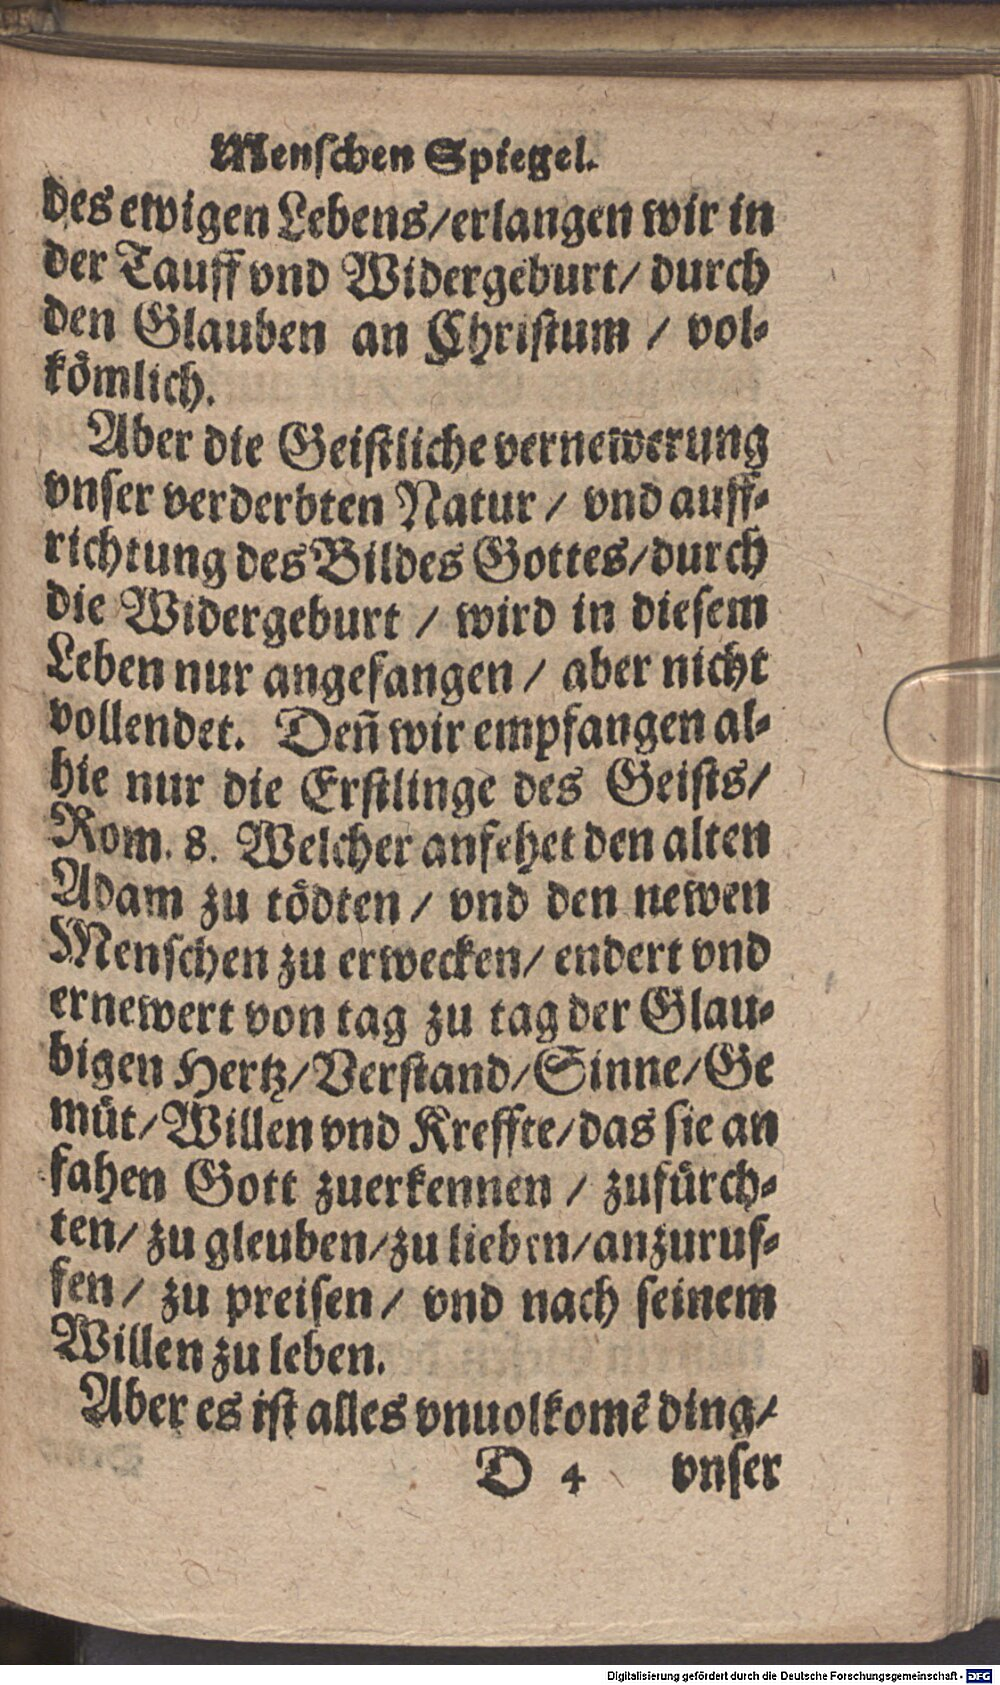 Menschen Spiegel.
des ewigen Lebens/erlangen wir in
der Tauff vnd Widergeburt/ durch
den Glauben an Christum / vol-
koͤmlich.
Aber die Geistliche vernewerung
vnser verderbten Natur / vnd auff-
richtung des Bildes Gottes/durch
die Widergeburt / wird in diesem
Leben nur angefangen / aber nicht
vollendet. Deñ wir empfangen al-
hie nur die Erstlinge des Geists/
Rom. 8. Welcher anfehet den alten
Adam zu toͤdten / vnd den newen
Menschen zu erwecken/ endert vnd
ernewert von tag zu tag der Glau-
bigen Hertz/Verstand/Sinne/Ge
muͤt/Willen vnd Kreffte/das sie an
fahen Gott zuerkennen / zufuͤrch-
ten/ zu gleuben/zu lieben/anzuruf-
fen/ zu preisen/ vnd nach seinem
Willen zu leben.
Aber es ist alles vnuolkomẽ ding/
D 4 vnser
Digitalisierung gefördert durch die Deutsche Forschungsgemeinschaft - DFG